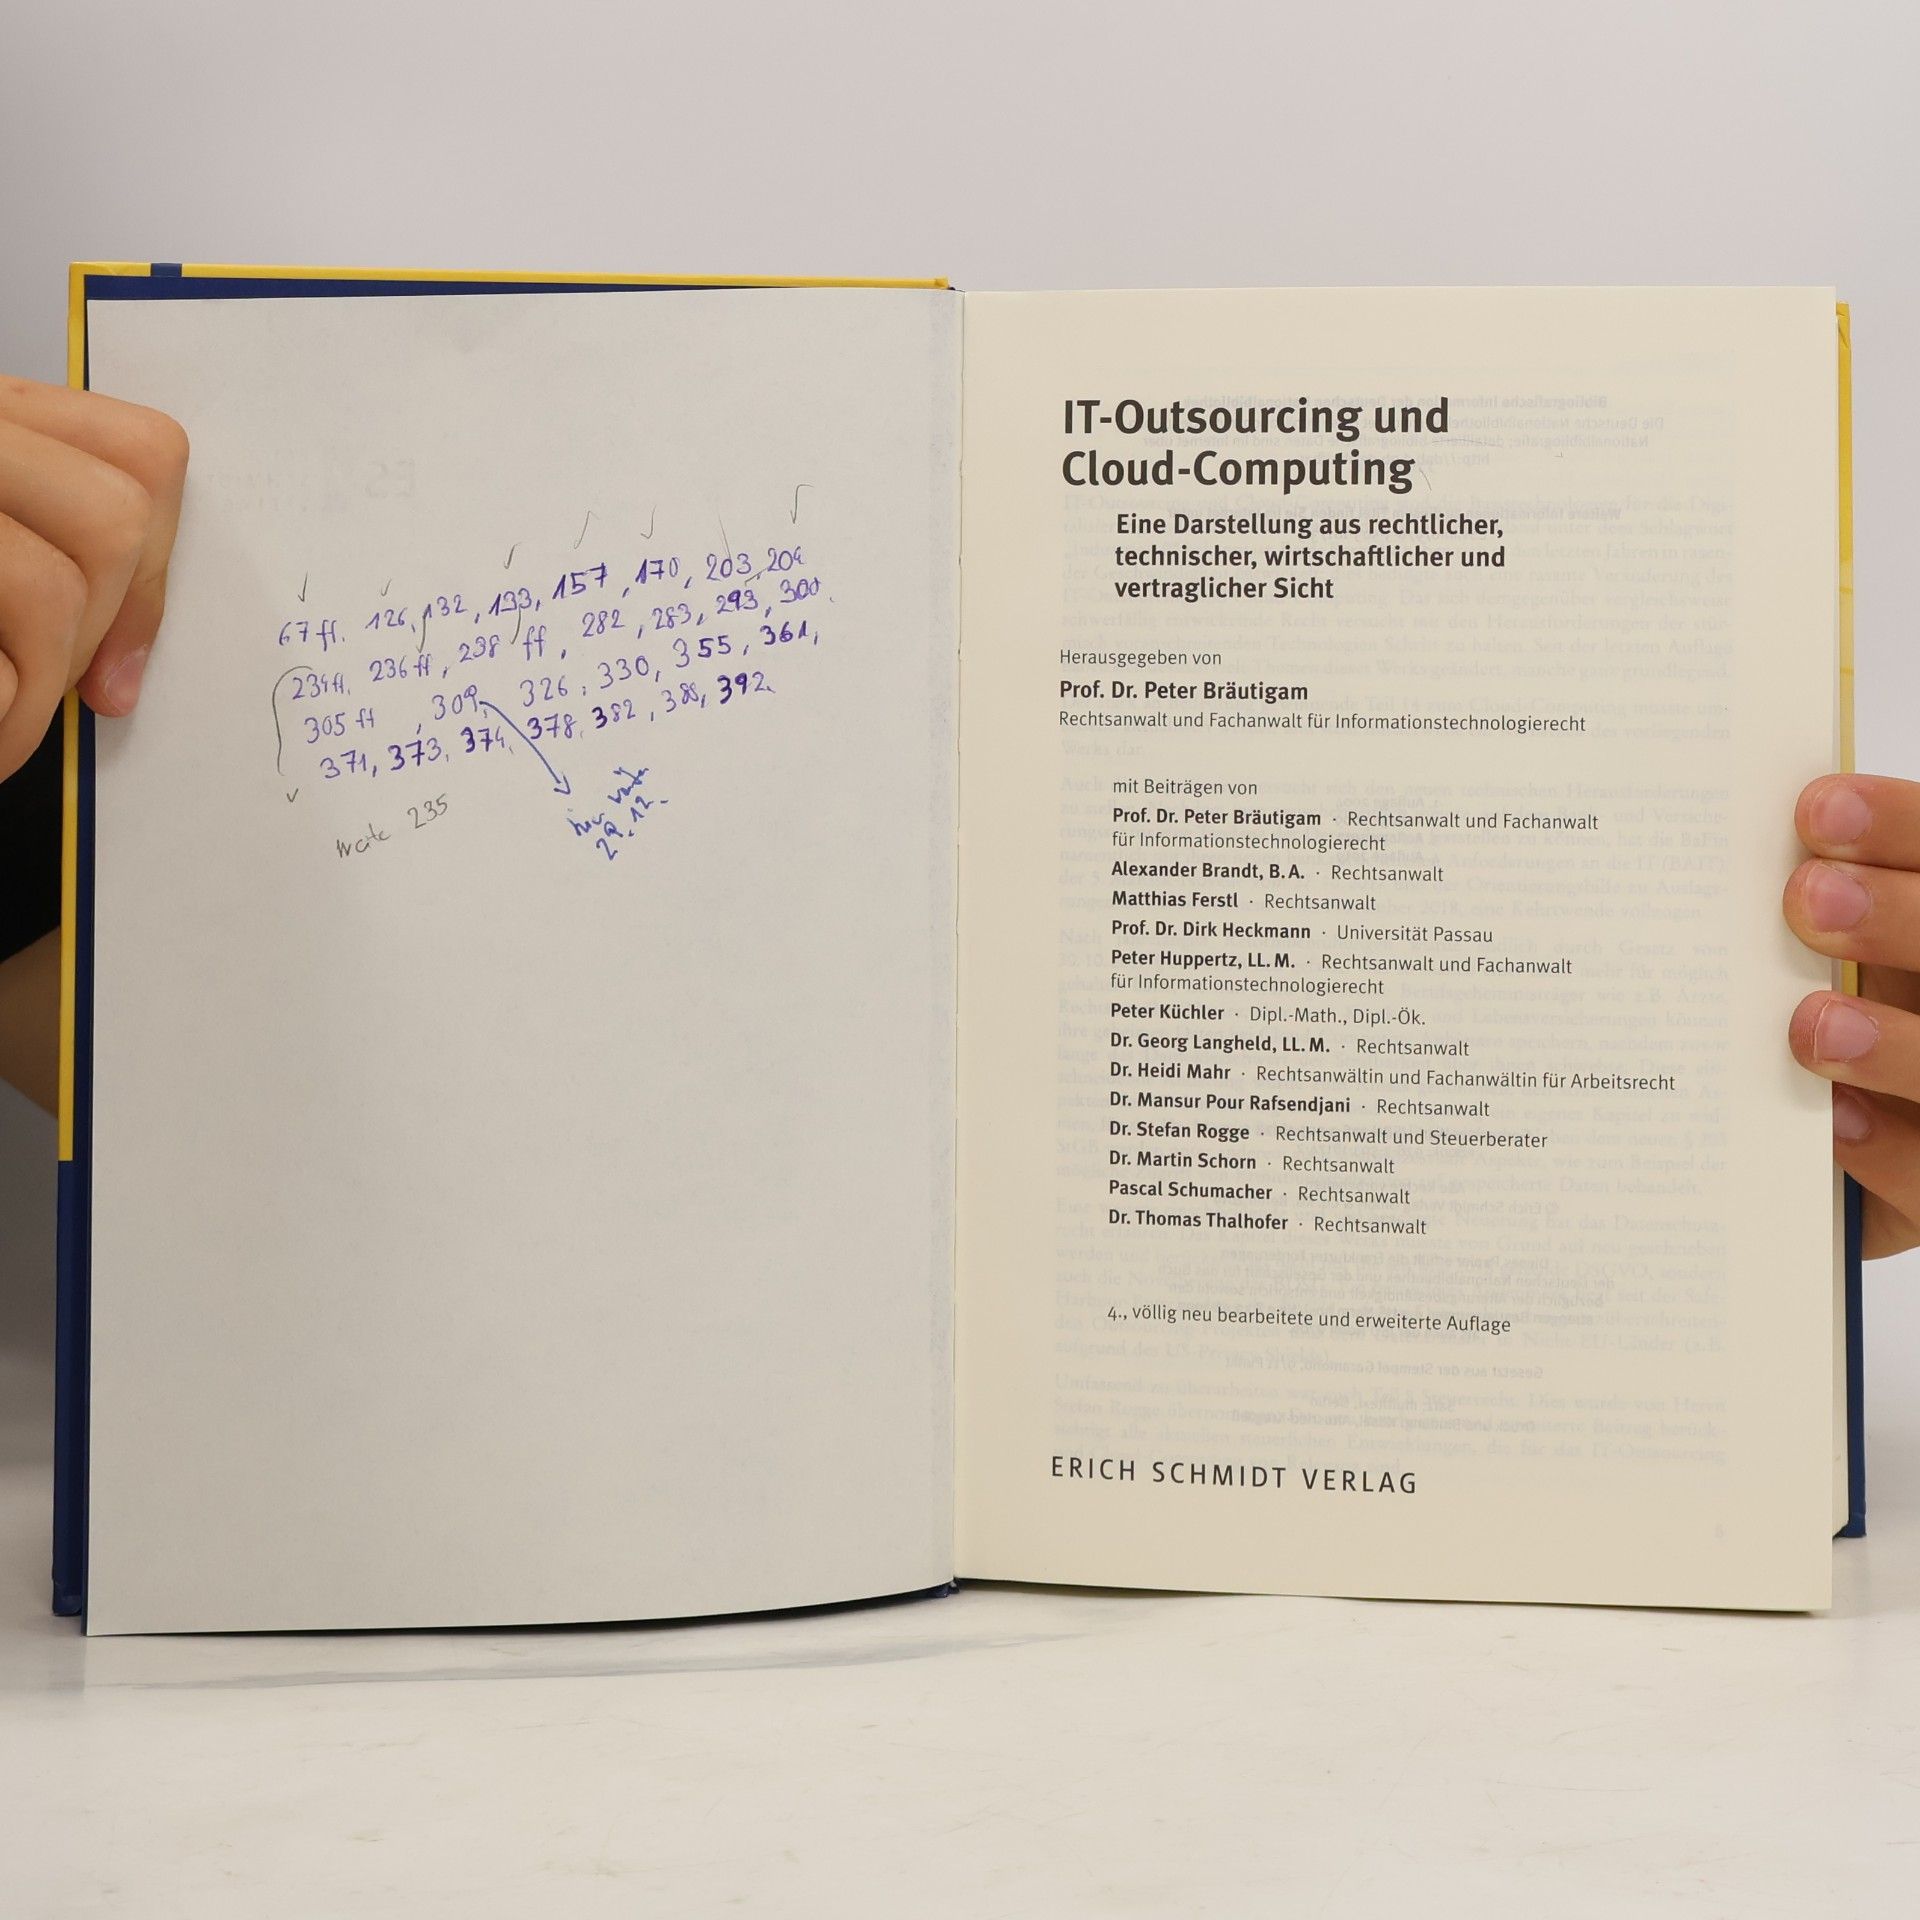 67 ff. 126, 132, 133, 157, 170, 203, 204
234 ff, 236 ff, 238 ff, 282, 283, 293, 300.
305 ff, 309, 326, 330, 355, 361,
371, 373, 374, 378, 382, 388, 392.
235
29.12.
IT-Outsourcing und
Cloud-Computing
Eine Darstellung aus rechtlicher,
technischer, wirtschaftlicher und
vertraglicher Sicht
Herausgegeben von
Prof. Dr. Peter Bräutigam
Rechtsanwalt und Fachanwalt für Informationstechnologierecht
mit Beiträgen von
Prof. Dr. Peter Bräutigam · Rechtsanwalt und Fachanwalt
für Informationstechnologierecht
Alexander Brandt, B. A. · Rechtsanwalt
Matthias Ferstl · Rechtsanwalt
Prof. Dr. Dirk Heckmann · Universität Passau
Peter Huppertz, LL. M. · Rechtsanwalt und Fachanwalt
für Informationstechnologierecht
Peter Küchler · Dipl.-Math., Dipl.-Ök.
Dr. Georg Langheld, LL. M. · Rechtsanwalt
Dr. Heidi Mahr · Rechtsanwältin und Fachanwältin für Arbeitsrecht
Dr. Mansur Pour Rafsendjani · Rechtsanwalt
Dr. Stefan Rogge · Rechtsanwalt und Steuerberater
Dr. Martin Schorn · Rechtsanwalt
Pascal Schumacher · Rechtsanwalt
Dr. Thomas Thalhofer · Rechtsanwalt
4., völlig neu bearbeitete und erweiterte Auflage
ERICH SCHMIDT VERLAG